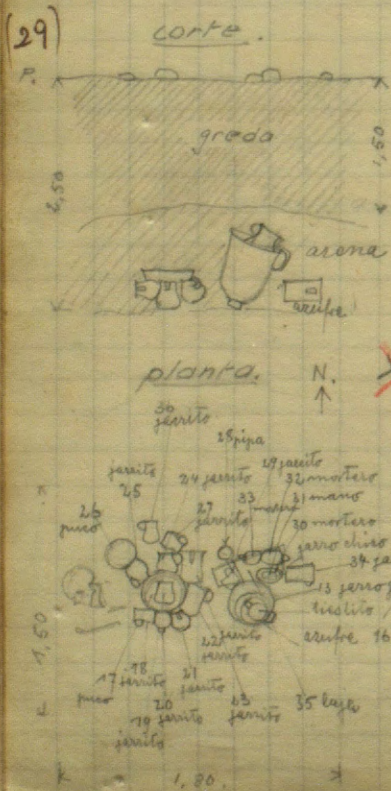 (29)
corte.
P.
greda
1,50
2,50
arena
azufre
planta.
N.
30
jarrito
28 pipa
jarrito
25
24 jarrito
29 jarrito
32 mortero
26
puco
27
jarrito
33
31 mano
30 mortero
jarro chico
34
13 jarro
azufre 16
1,50
22 jarrito
jarrito
17
puco
18
jarrito
21
jarrito
20
jarrito
19
jarrito
23
jarrito
35
1,80